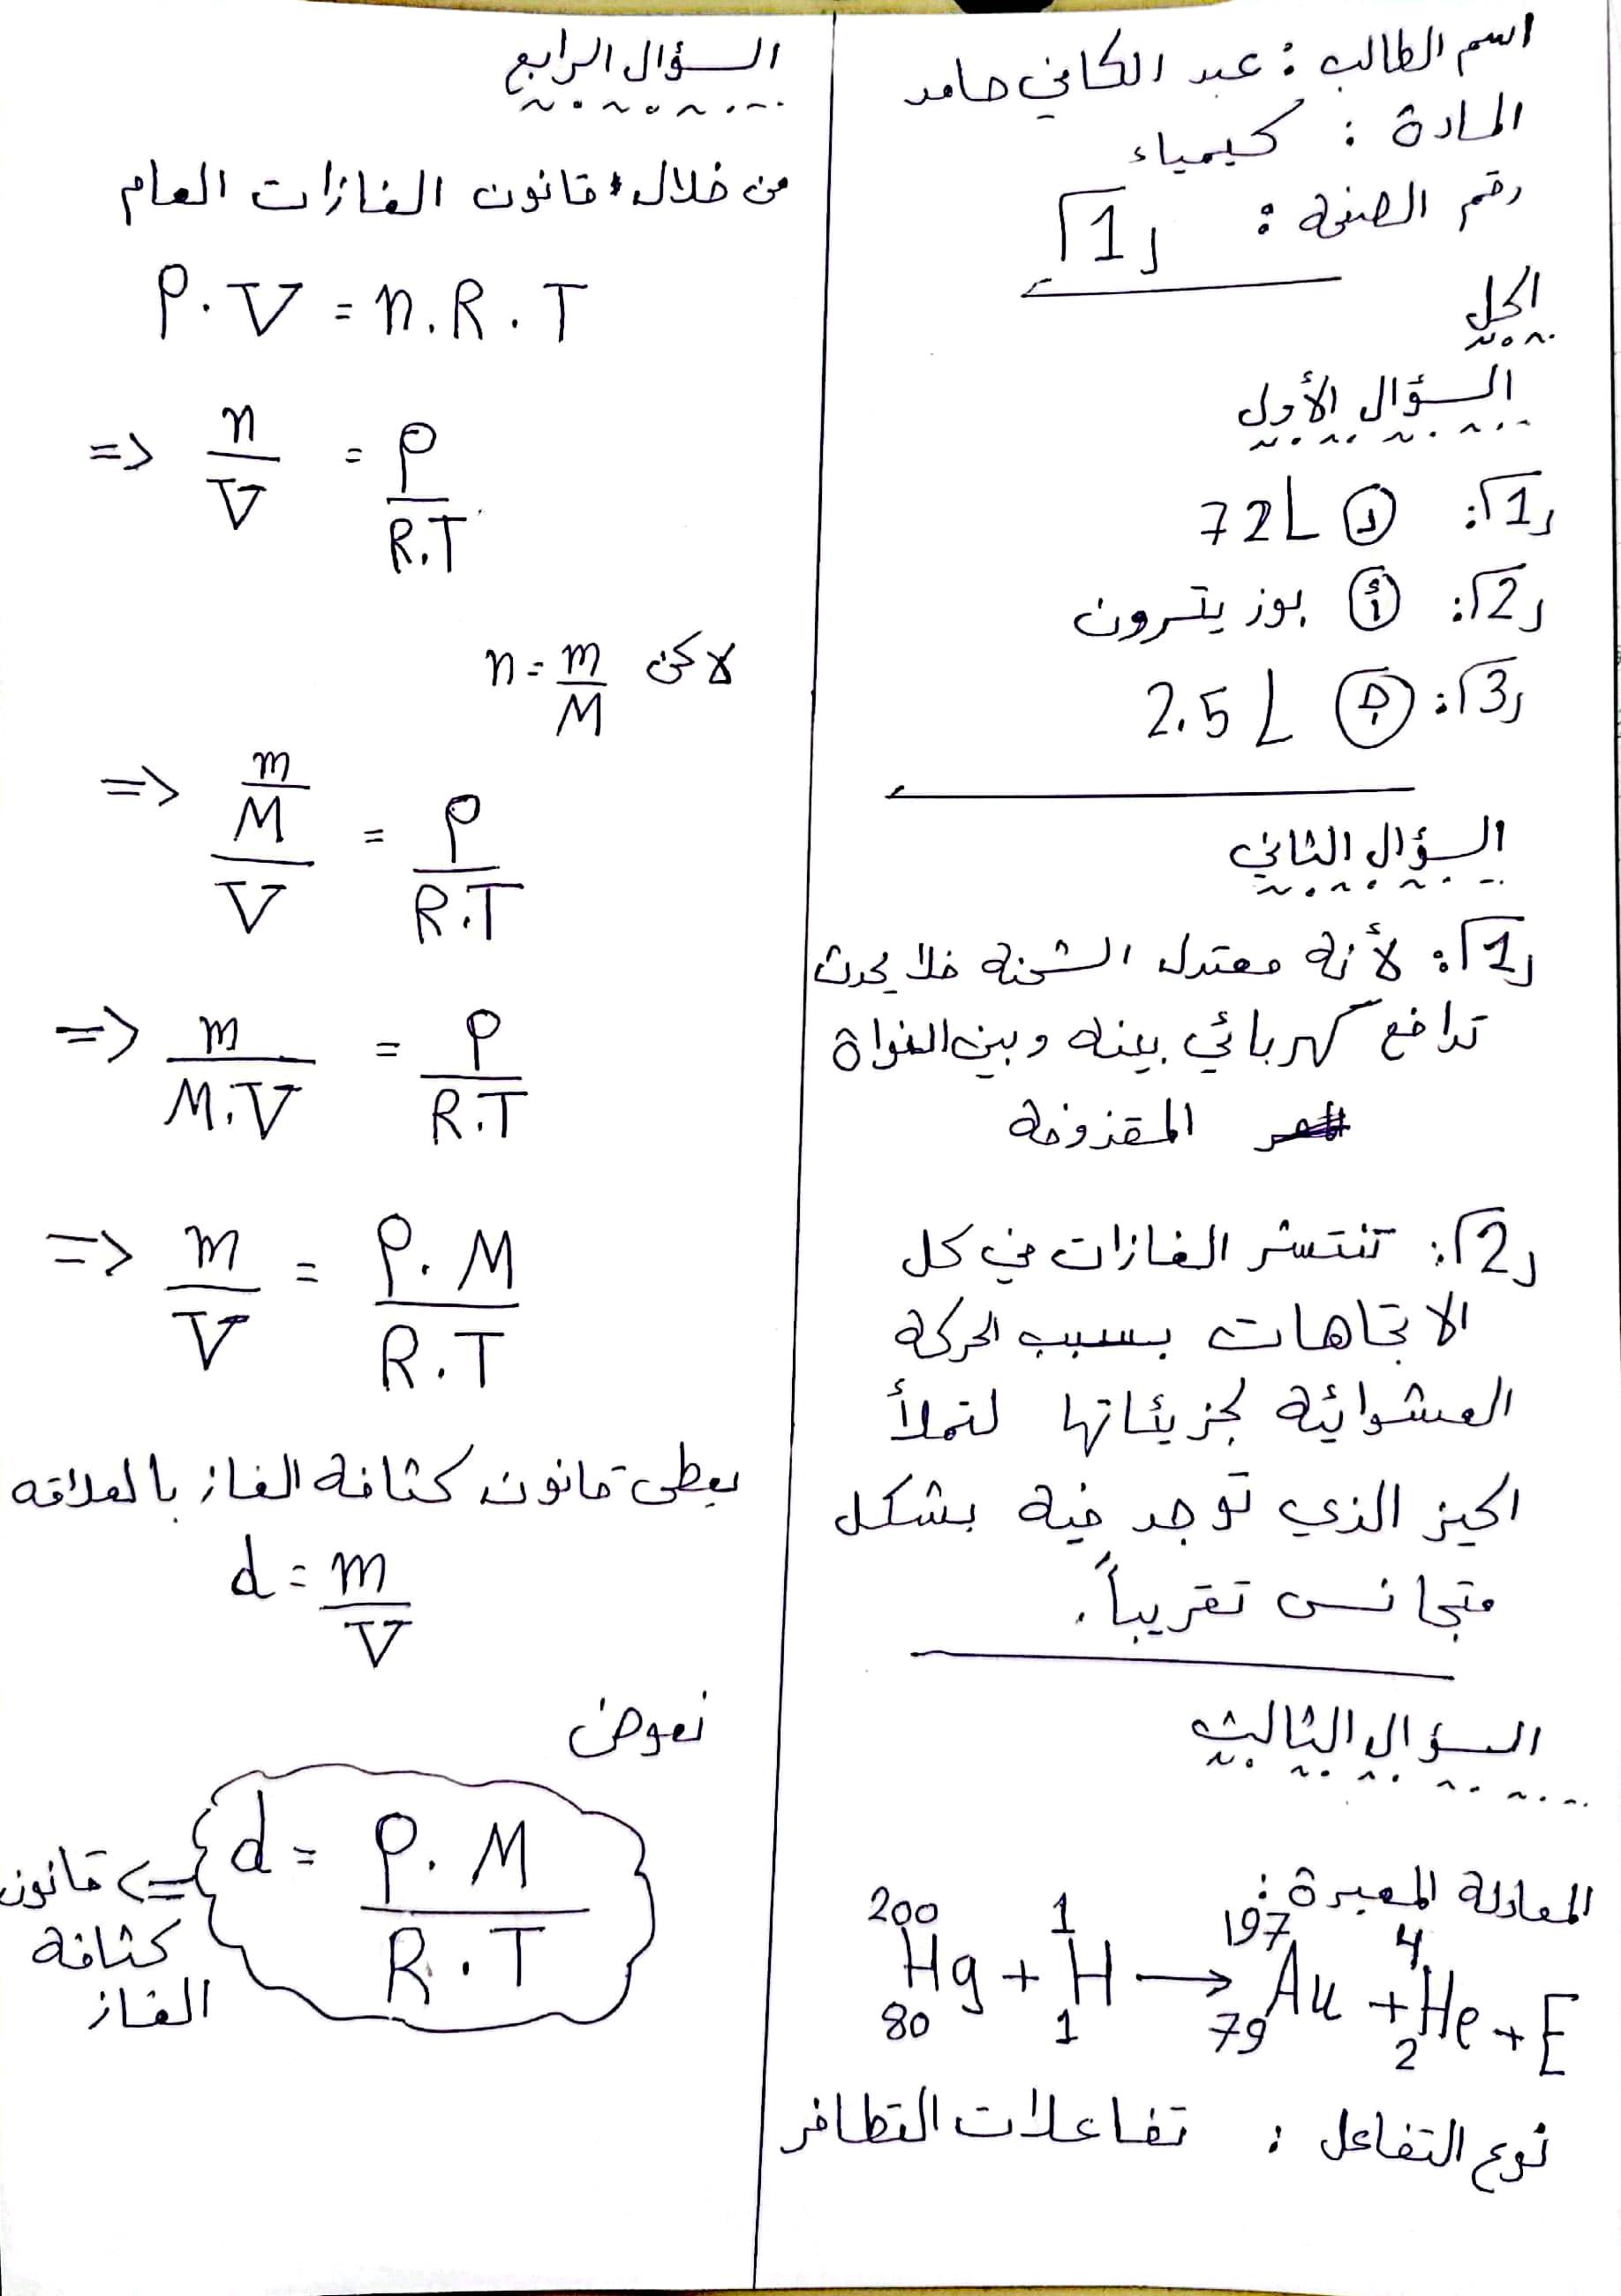 اسم الطالب : عبد الكافي حامد
المادة : كيمياء
رقم الصفحة : [1]
الحل
السؤال الأول
[1]: د 72L
[2]: أ بوزيترون
[3]: 2.5 L
السؤال الثاني
[1]: لأنه معتدل الشحنة فلا يحدث
تدافع كهربائي بينه وبين النواة
المقذوفة
[2]: تنتشر الغازات في كل
الاتجاهات بسبب الحركة
العشوائية لجزيئاتها لتملأ
الحيز الذي توجد فيه بشكل
متجانس تقريباً.
السؤال الثالث
المعادلة المعبرة :
²⁰⁰₈₀Hg + ¹₁H → ¹⁹⁷₇₉Au + ⁴₂He + E
نوع التفاعل : تفاعلات التطافر
السؤال الرابع
من خلال قانون الغازات العام
P.V = n.R.T
=> n/V = P/R.T
لاكن n = m/M
=> (m/M)/V = P/R.T
=> m/M.V = P/R.T
=> m/V = P.M/R.T
يعطى قانون كثافة الغاز بالعلاقه
d = m/V
نعوض
d = P.M/R.T <= قانون
كثافة
الغاز